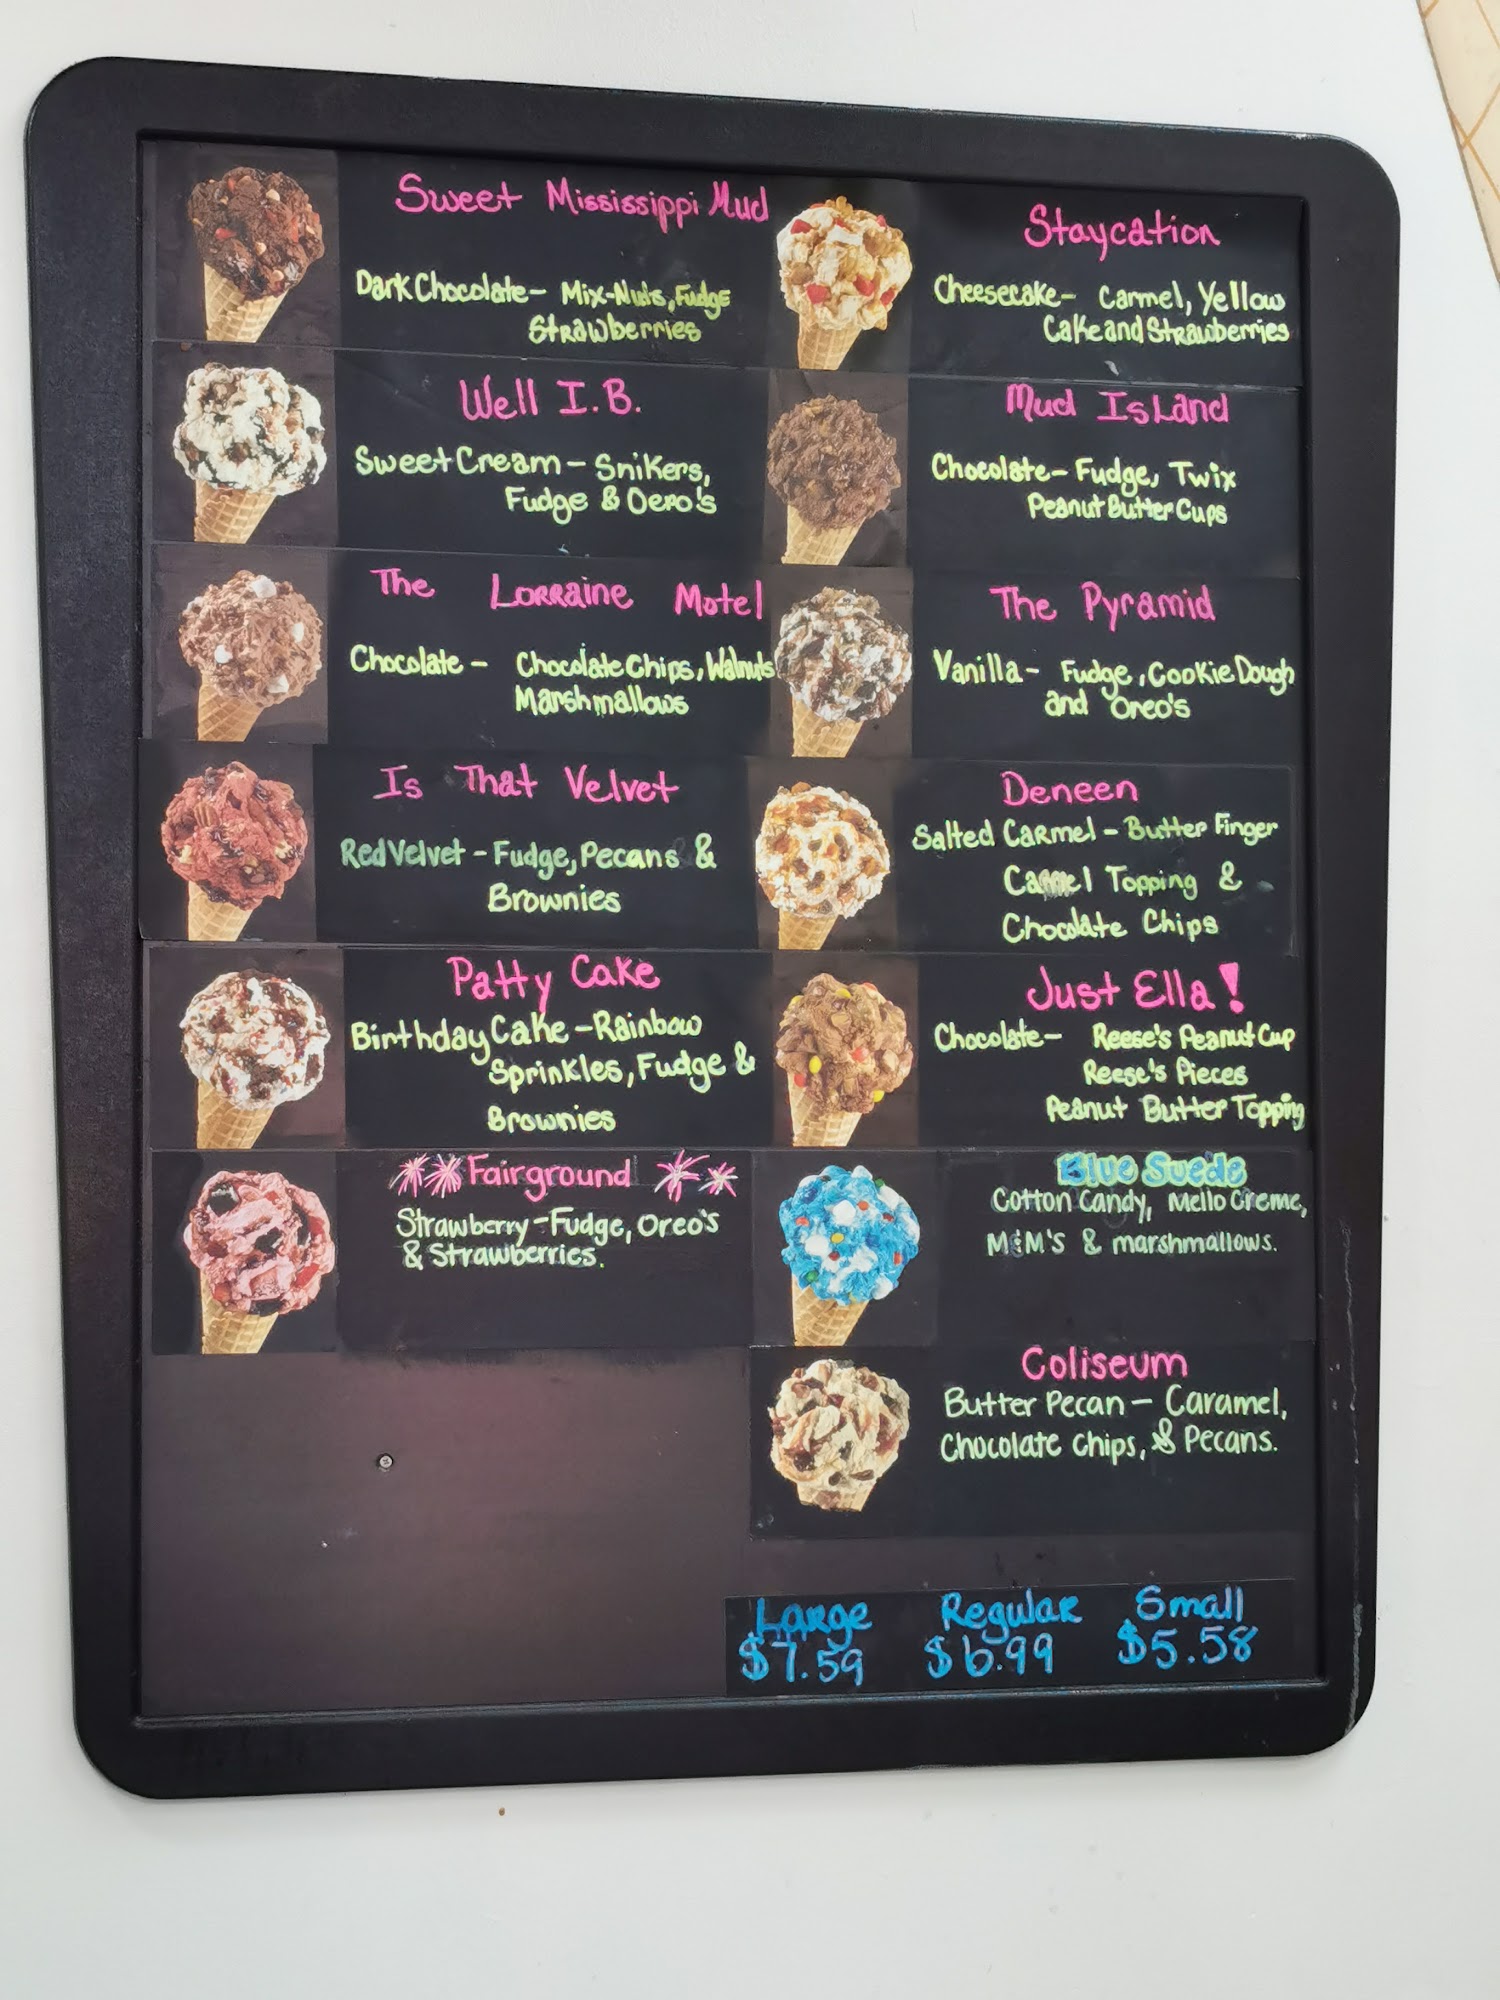 Sweet Mississippi Mud
Dark Chocolate - Mix-Nuts, Fudge
Strawberries
Staycation
Cheesecake - Carmel, Yellow
Cake and Strawberries
Well I.B.
Sweet Cream - Snikers,
Fudge & Oero's
Mud Island
Chocolate - Fudge, Twix
Peanut Butter Cups
The Lorraine Motel
Chocolate - Chocolate Chips, Walnuts
Marshmallows
The Pyramid
Vanilla - Fudge, Cookie Dough
and Oreo's
Is That Velvet
Red Velvet - Fudge, Pecans &
Brownies
Deneen
Salted Carmel - Butter Finger
Carmel Topping &
Chocolate Chips
Patty Cake
Birthday Cake - Rainbow
Sprinkles, Fudge &
Brownies
Just Ella!
Chocolate - Reese's Peanut Cup
Reese's Pieces
Peanut Butter Topping
Fairground
Strawberry - Fudge, Oreo's
& Strawberries.
Blue Suede
Cotton Candy, Mello Creme,
M&M's & marshmallows.
Coliseum
Butter Pecan - Caramel,
Chocolate Chips, & Pecans.
Large Regular Small
$7.59 $6.99 $5.58